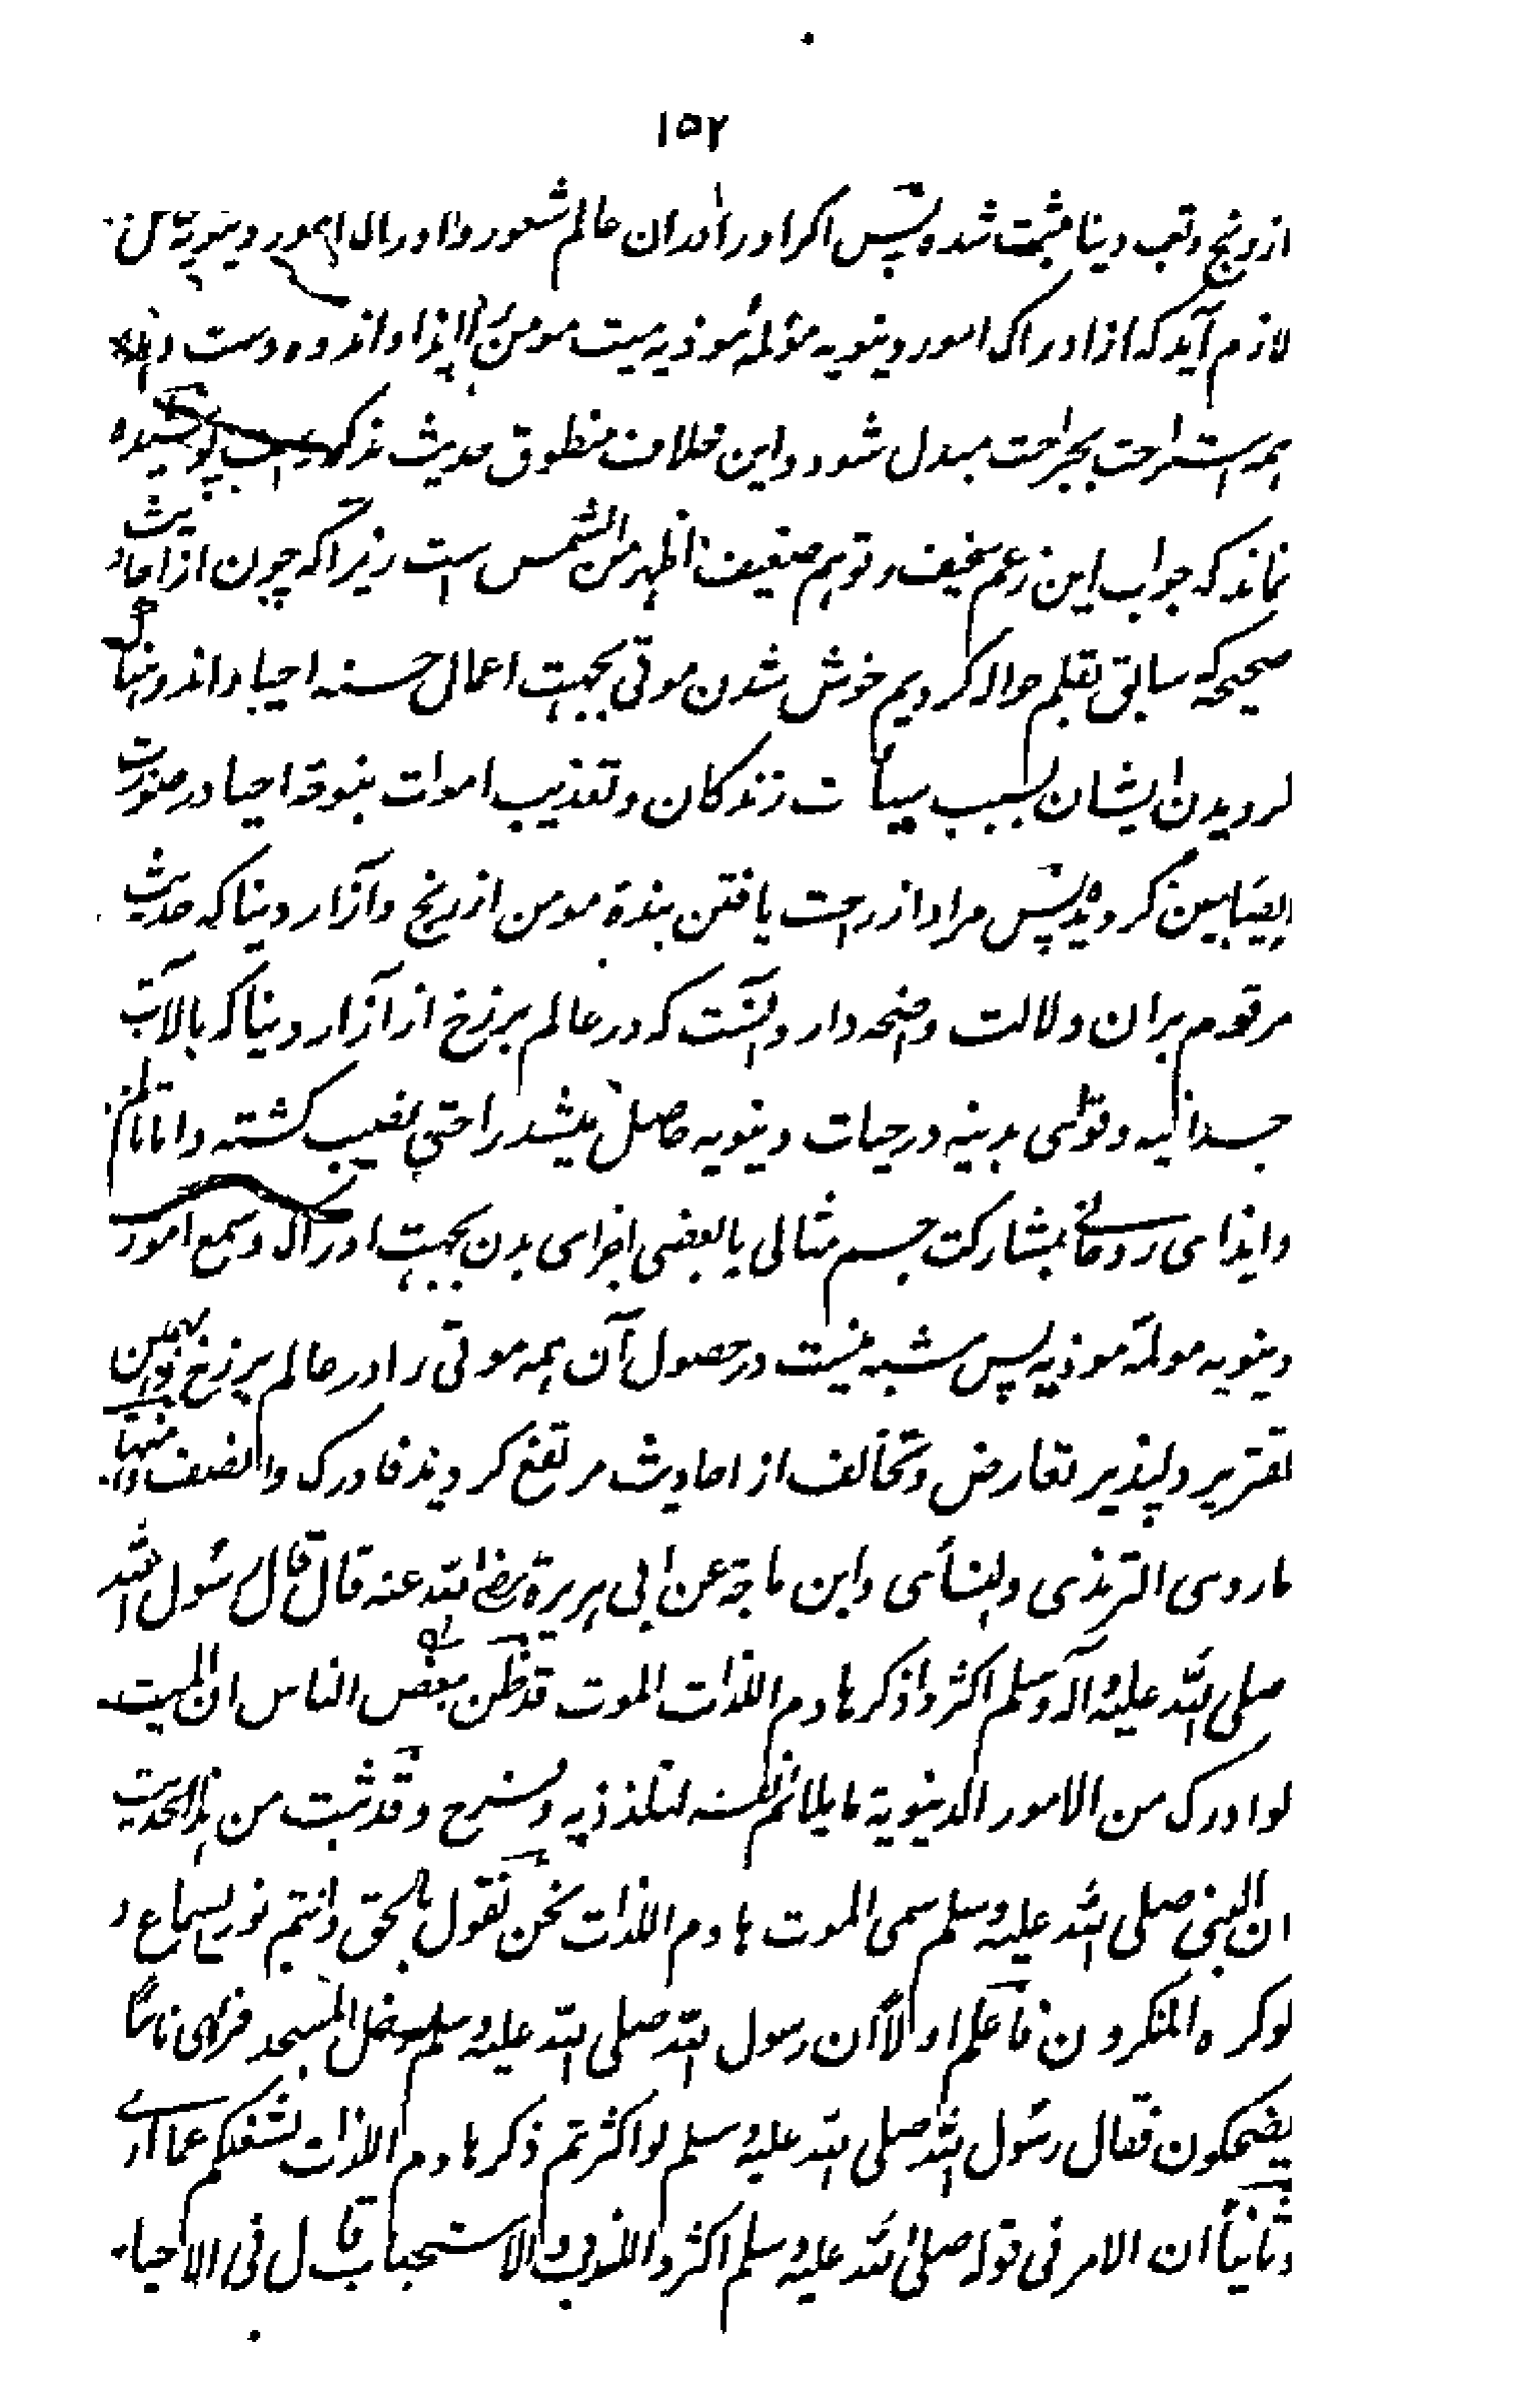 ۱۵۲
از رنج و تعب دینا مثبت شده پس اگر او را دران عالم شعور و ادراک امور دینویه
لازم آید که از ادراک امور دینویه مؤلمه موذیه میت مومن را ایذا و اندوه دست دهد
همه استراحت بجراحت مبدل شود و این خلاف منطوق حدیث مذکور پوشیده
نماند که جواب این زعم سخیف و توهم ضعیف اظهر من الشمس است زیرا که چون از احادیث
صحیحه که سابق بقلم حواله کردیم خوش شدن موتی بجهت اعمال حسنه احیا و اندوهناک
گردیدن ایشان بسبب سیأت زندگان و تعذیب اموات بنوحهٔ احیا در صورت
ایضا مبین گردید پس مراد از راحت یافتن بندهٔ مومن از رنج و آزار دینا که حدیث
مرقوم بران دلالت واضحه دارد اینست که در عالم برزخ از آزار دینا که بالات
جسدانیه و قوای بدنیه در حیات دینویه حاصل میشد راحتی نصیب گشته و اما تالم
و ایذای روحانی بمشارکت جسم مثالی یا بعضی اجزای بدن بجهت ادراک و سمع امور
دینویه مولمه موذیه پس شبه نیست در حصول آن همه موتی را در عالم برزخ و بهمین
تقریر دلپذیر تعارض و تخالف از احادیث مرتفع گردید فادرک وانصف ومنها
ما روی الترمذی والنسأی وابن ماجة عن ابی هریرة رضی الله عنه قال قال رسول الله
صلی الله علیه وآله وسلم اکثروا ذکر هادم اللذات الموت قد ظن بعض الناس ان المیت
لو ادرک من الامور الدینویة ما یلائم نفسه لتلذذ به وفرح وقد ثبت من هذا الحدیث
ان النبی صلی الله علیه وسلم سمی الموت هادم اللذات نحن نقول بالحق وانتم نور السماع و
لو کره المنکرون فاعلم اولاً ان رسول الله صلی الله علیه وسلم دخل المسجد فرای ناساً
یضحکون فقال رسول الله صلی الله علیه وسلم لو اکثرتم ذکر هادم اللذات لشغلکم عما اری
وثانیاً ان الامر فی قوله صلی الله علیه وسلم اکثروا للندب والاستحباب قال فی الاحیاء